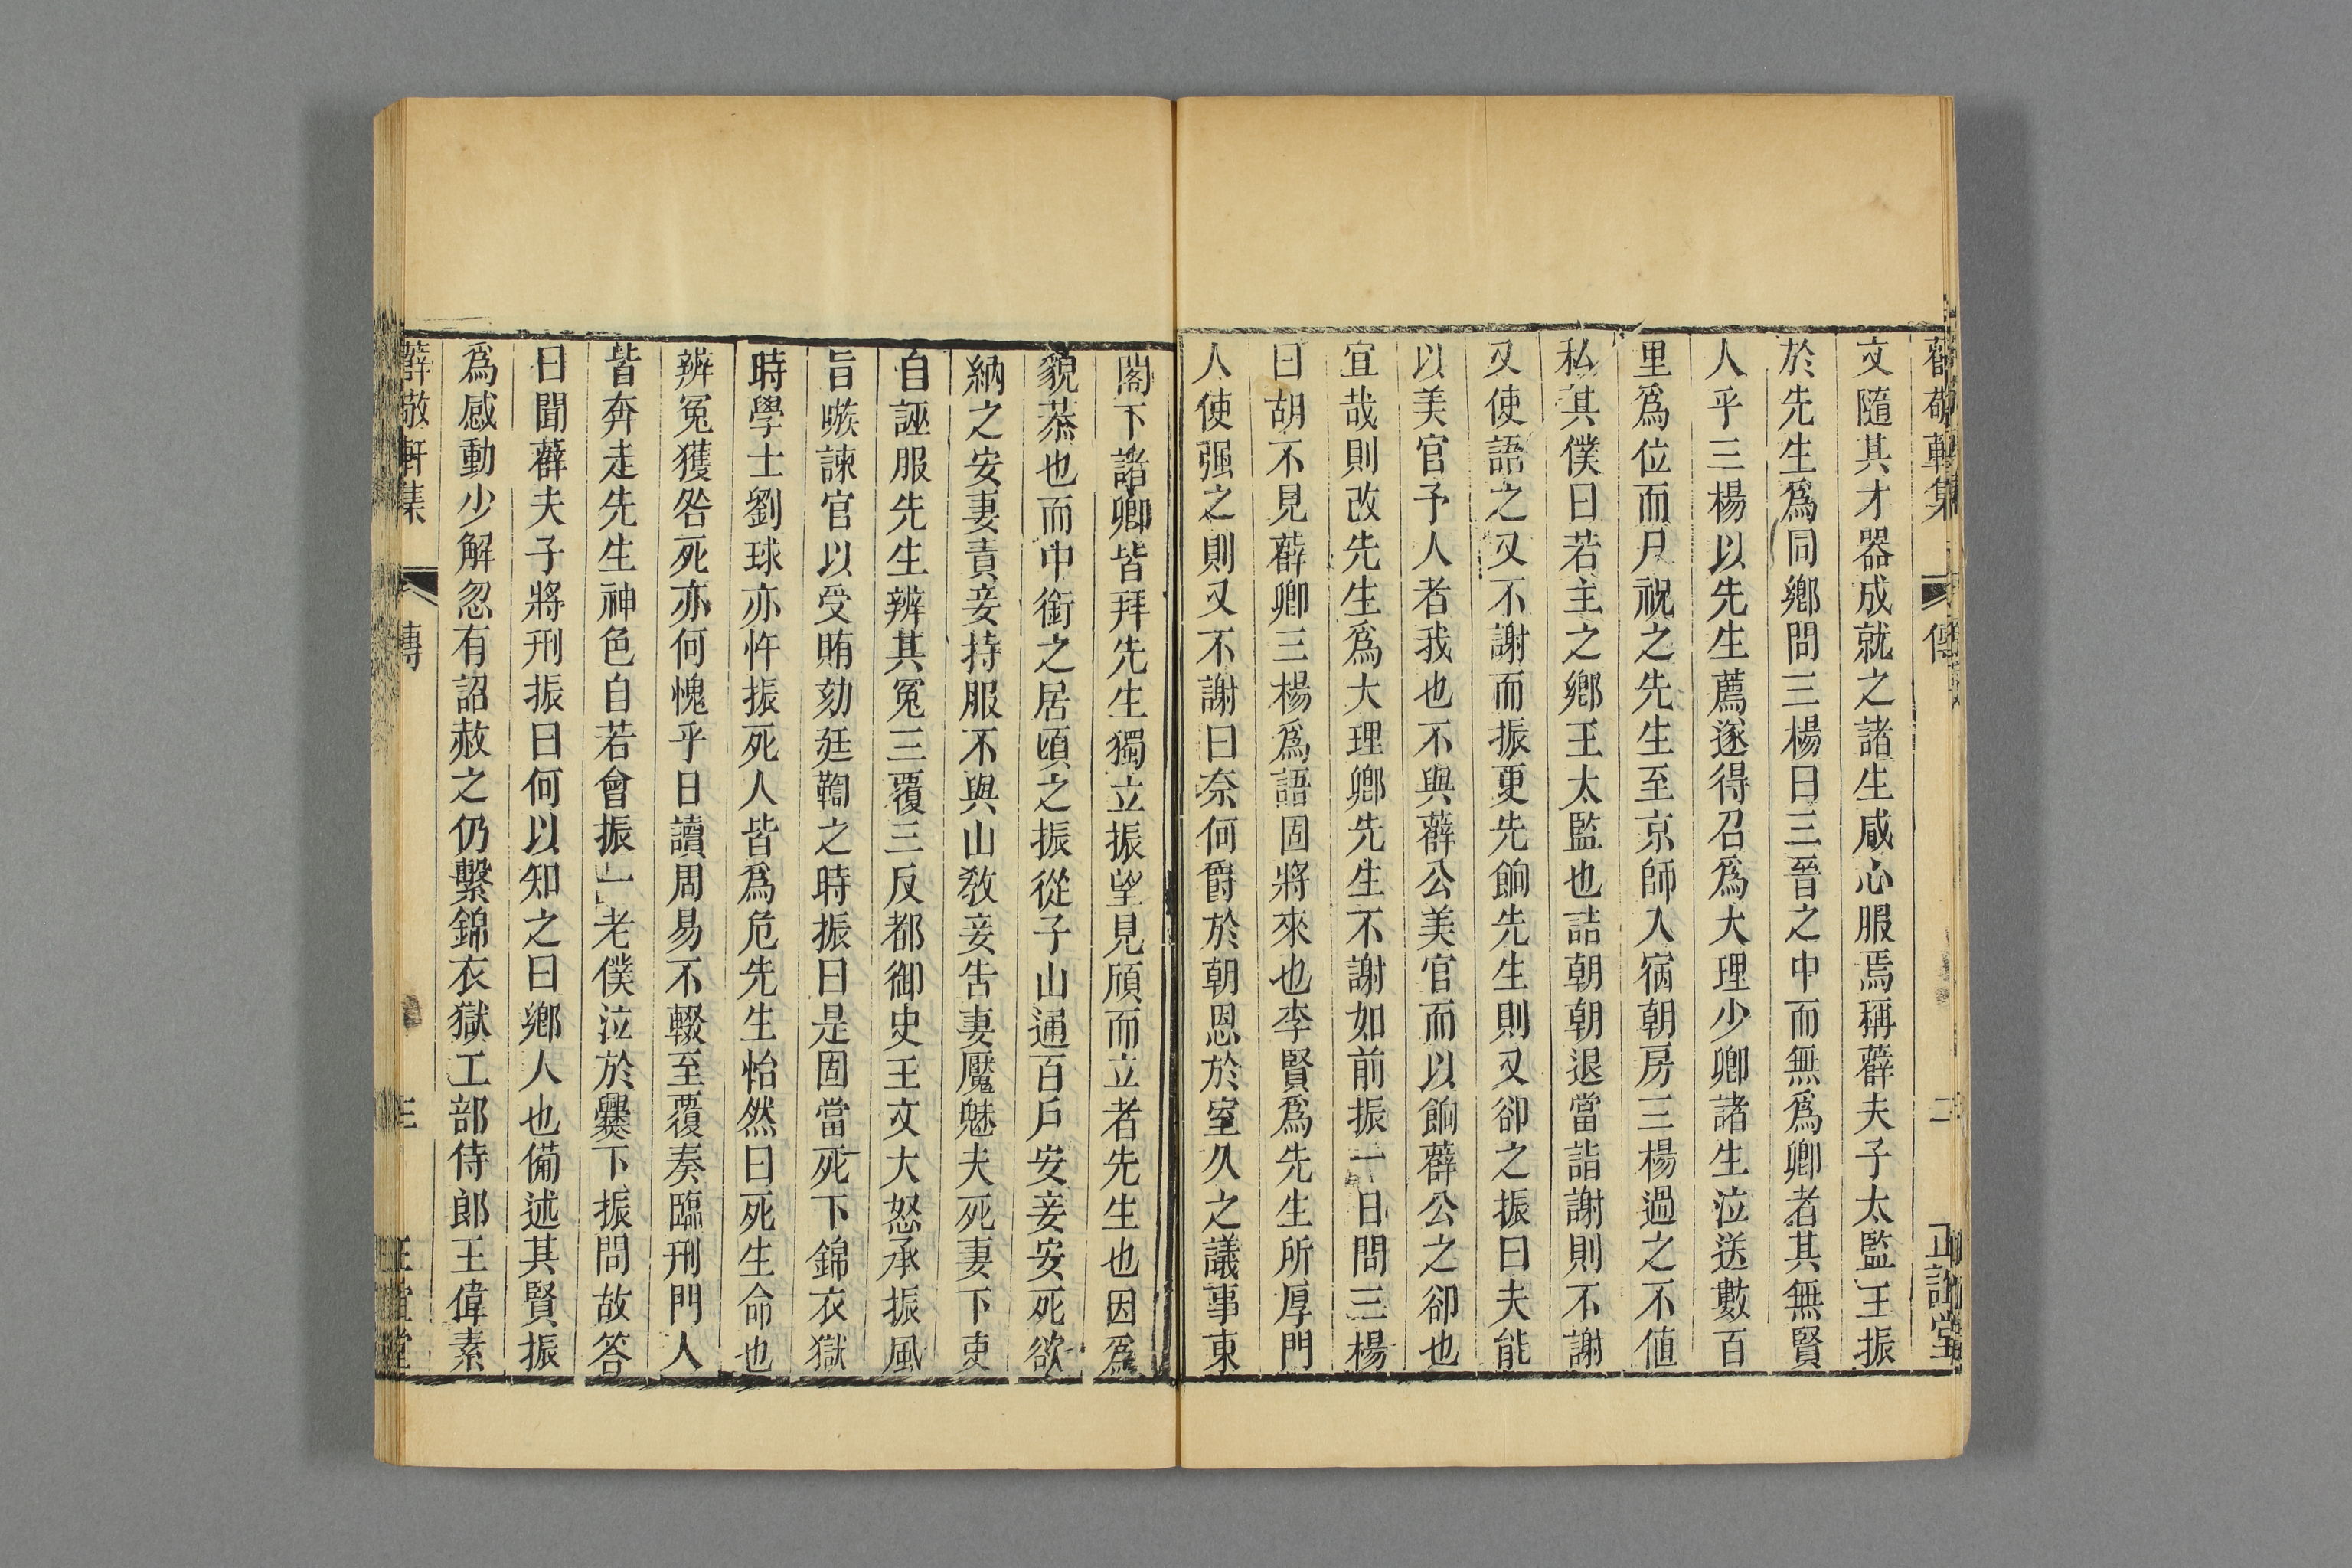 薛敬軒集 傳 二 正誼堂
文隨其才器成就之諸生咸心服焉稱薛夫子太監王振
於先生爲同鄉問三楊曰三晉之中而無爲卿者其無賢
人乎三楊以先生薦遂得召爲大理少卿諸生泣送數百
里爲位而尸祝之先生至京師入宿朝房三楊過之不値
私其僕曰若主之鄉王太監也詰朝朝退當詣謝則不謝
又使語之又不謝而振更先餉先生則又卻之振曰夫能
以美官予人者我也不與薛公美官而以餉薛公之卻也
宜哉則改先生爲大理卿先生不謝如前振一日問三楊
曰胡不見薛卿三楊爲語固將來也李賢爲先生所厚門
人使强之則又不謝曰奈何爵於朝恩於室久之議事東
閣下諸卿皆拜先生獨立振望見頎而立者先生也因爲
貌恭也而中銜之居頃之振從子山通百戶安妾安死欲
納之安妻責妾持服不與山敎妾吿妻魘魅夫死妻下吏
自誣服先生辨其冤三覆三反都御史王文大怒承振風
旨嗾諫官以受賄劾廷鞫之時振曰是固當死下錦衣獄
時學士劉球亦忤振死人皆爲危先生怡然曰死生命也
辨冤獲咎死亦何愧乎日讀周易不輟至覆奏臨刑門人
皆奔走先生神色自若會振一老僕泣於爨下振問故答
曰聞薛夫子將刑振曰何以知之曰鄉人也備述其賢振
爲感動少解忽有詔赦之仍繫錦衣獄工部侍郎王偉素
薛敬軒集 傳 三 正誼堂